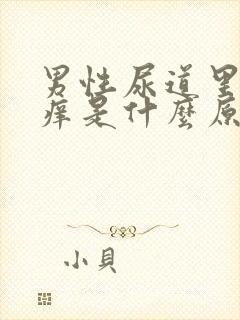 男性尿道里
痒是什麼原
小貝